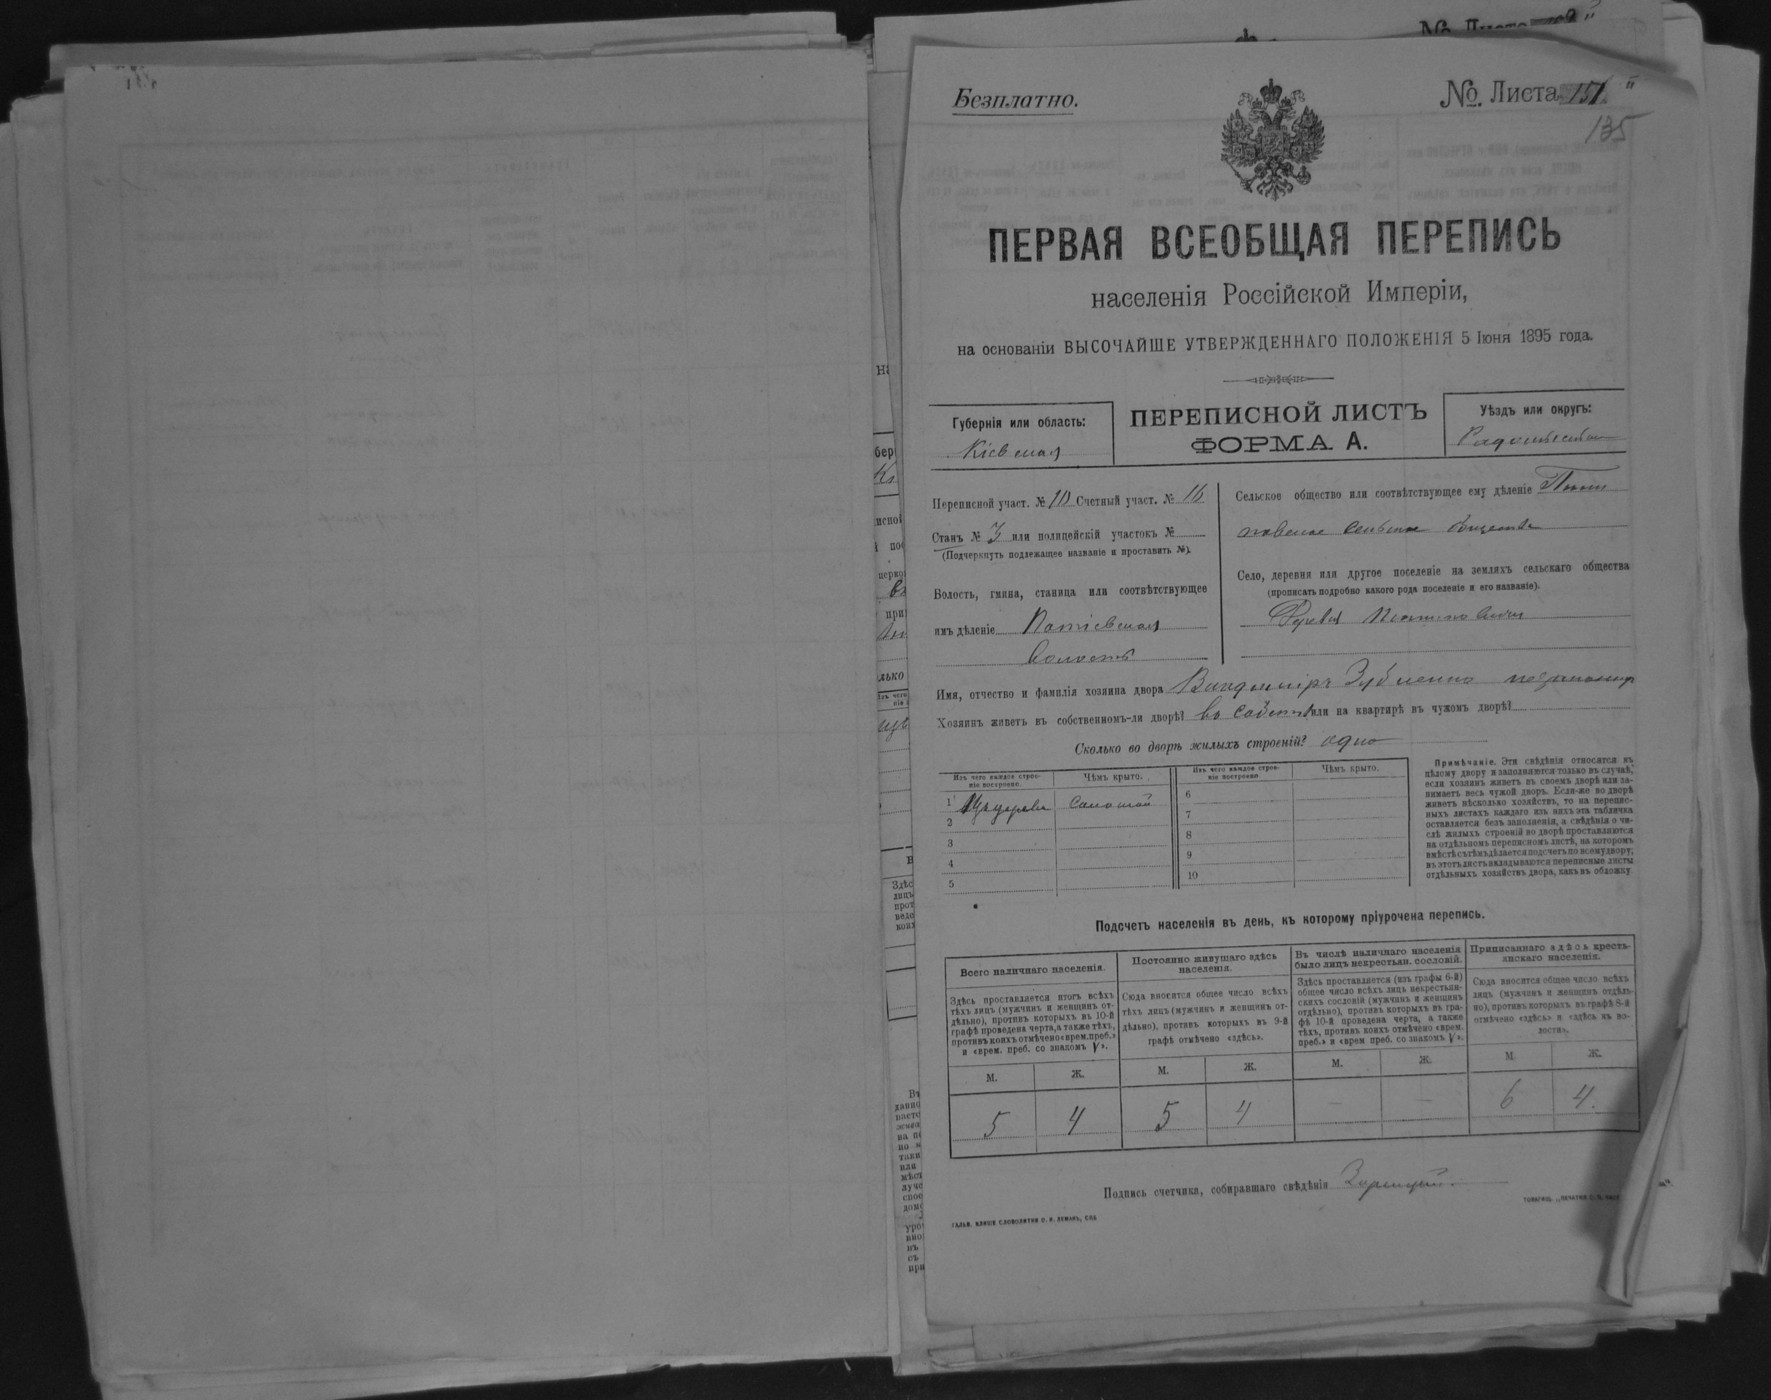 Безплатно.
№ Листа 151
135
ПЕРВАЯ ВСЕОБЩАЯ ПЕРЕПИСЬ
населенія Россійской Имперіи,
на основаніи ВЫСОЧАЙШЕ УТВЕРЖДЕННАГО ПОЛОЖЕНІЯ 5 Іюня 1895 года.
Губернія или область:
Кіевская
ПЕРЕПИСНОЙ ЛИСТЪ
ФОРМА А.
Уѣздъ или округъ:
Переписной участ. № 10 Счетный участ. № 16
Станъ № 3 или полицейскій участокъ №
(Подчеркнуть подлежащее названіе и проставить №).
Волость, гмина, станица или соотвѣтствующее
имъ дѣленіе Потіевская
волость
Сельское общество или соотвѣтствующее ему дѣленіе
сельское общество
Село, деревня или другое поселеніе на земляхъ сельскаго общества
(прописать подробно какого рода поселеніе и его названіе).
Имя, отчество и фамилія хозяина двора Владиміръ
Хозяинъ живетъ въ собственномъ-ли дворѣ? въ или на квартирѣ въ чужомъ дворѣ?
Сколько во дворѣ жилыхъ строеній? одно
Изъ чего каждое строе-
ніе построено.
Чѣмъ крыто.
Изъ чего каждое строе-
ніе построено.
Чѣмъ крыто.
1 Изъ дерева соломой
2
3
4
5
6
7
8
9
10
Примѣчаніе. Эти свѣдѣнія относятся къ
цѣлому двору и заполняются только въ случаѣ,
если хозяинъ живетъ въ своемъ дворѣ или за-
нимаетъ весь чужой дворъ. Если-же во дворѣ
живетъ нѣсколько хозяйствъ, то на перепис-
ныхъ листахъ каждаго изъ нихъ эта табличка
оставляется безъ заполненія, а свѣдѣнія о чи-
слѣ жилыхъ строеній во дворѣ проставляются
на отдѣльномъ переписномъ листѣ, на которомъ
вмѣстѣ съ тѣмъ дѣлается подсчетъ по всему двору;
въ этотъ листъ вкладываются переписные листы
отдѣльныхъ хозяйствъ двора, какъ въ обложку.
Подсчетъ населенія въ день, къ которому пріурочена перепись.
Всего наличнаго населенія.
Здѣсь проставляется итогъ всѣхъ
тѣхъ лицъ (мужчинъ и женщинъ от-
дѣльно), противъ которыхъ въ 10-й
графѣ проведена черта, а также тѣхъ,
противъ коихъ отмѣчено «врем. преб.»
и «врем. преб. со знакомъ V».
Постоянно живущаго здѣсь
населенія.
Сюда вносится общее число всѣхъ
тѣхъ лицъ (мужчинъ и женщинъ от-
дѣльно), противъ которыхъ въ 9-й
графѣ отмѣчено «здѣсь».
Въ числѣ наличнаго населенія
было лицъ некрестьян. сословій.
Здѣсь проставляется (изъ графы 6-й)
общее число всѣхъ лицъ некрестьян-
скихъ сословій (мужчинъ и женщинъ
отдѣльно), противъ которыхъ въ гра-
фѣ 10-й проведена черта, а также
тѣхъ, противъ коихъ отмѣчено «врем.
преб.» и «врем. преб. со знакомъ V».
Приписаннаго здѣсь кресть-
янскаго населенія.
Сюда вносится общее число всѣхъ
лицъ (мужчинъ и женщинъ отдѣль-
но), противъ которыхъ въ графѣ 8-й
отмѣчено «здѣсь» и «здѣсь въ во-
лости».
М. Ж. М. Ж. М. Ж. М. Ж.
5 4 5 4 — — 6 4.
Подпись счетчика, собиравшаго свѣдѣнія
ГАЛЬВ. КЛИШЕ СЛОВОЛИТНИ О. И. ЛЕМАНЪ, СПБ.